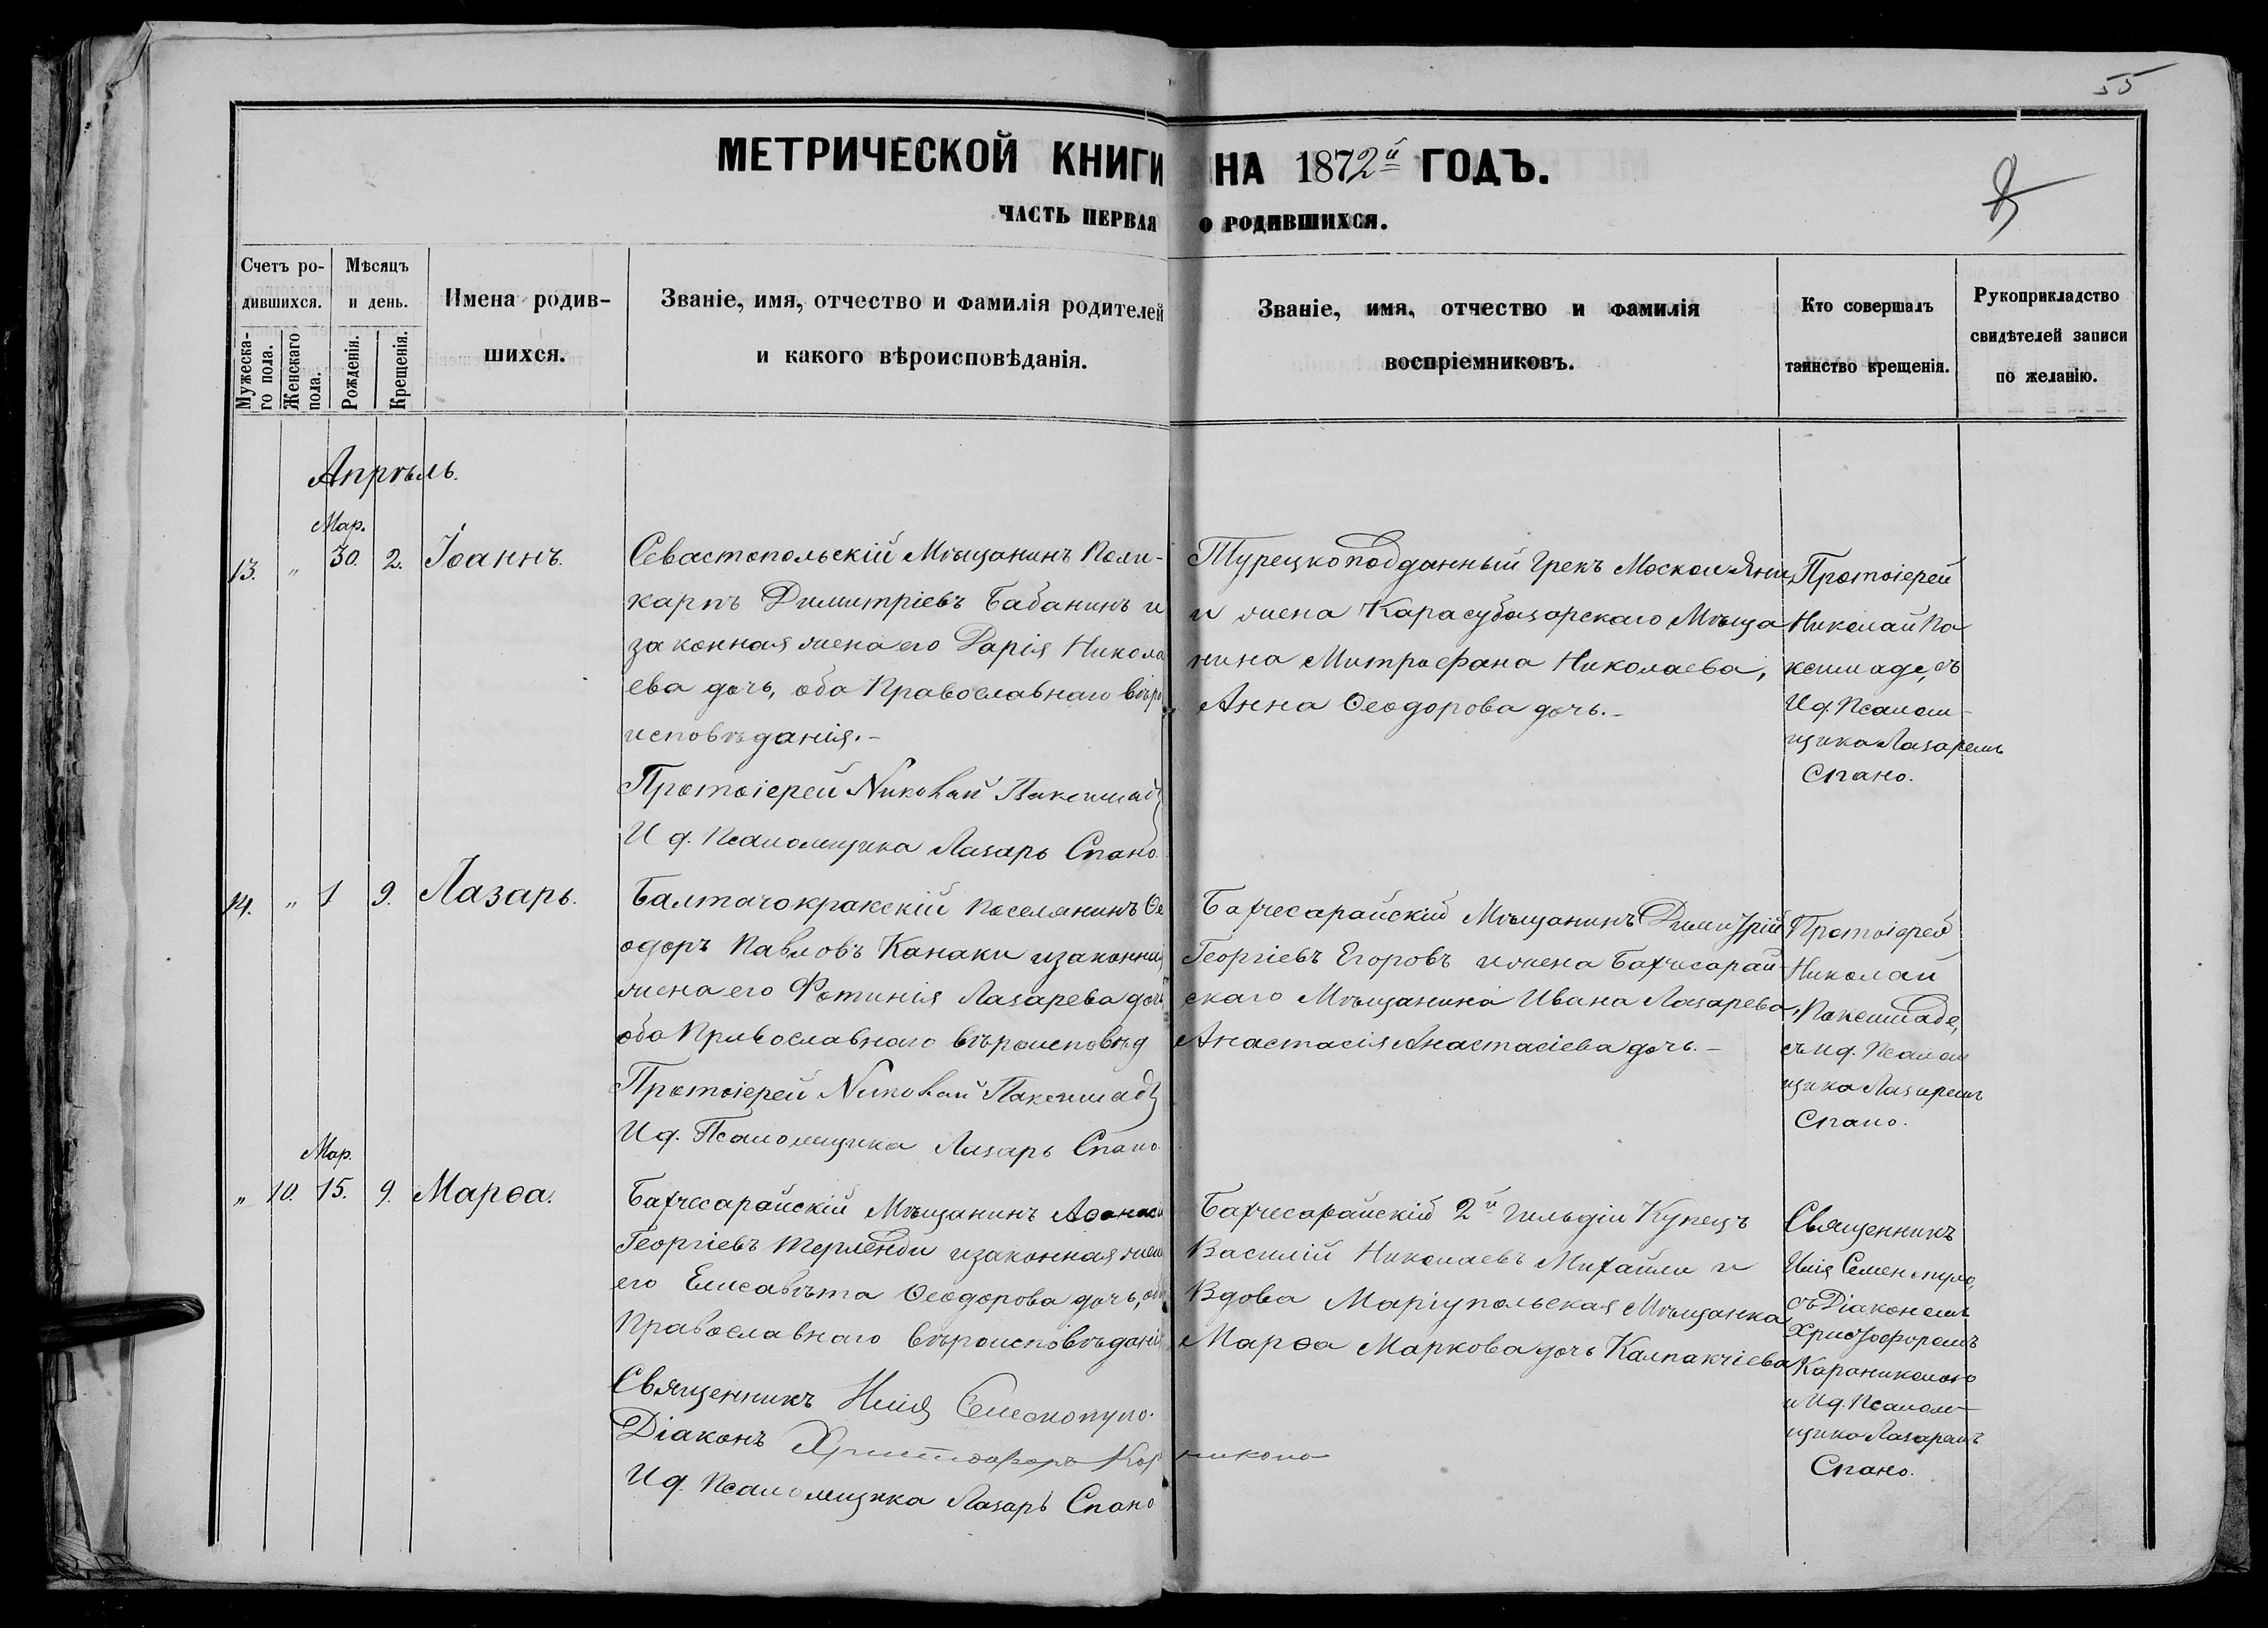 55
МЕТРИЧЕСКОЙ КНИГИ НА 1872й ГОДЪ.
8
ЧАСТЬ ПЕРВАЯ О РОДИВШИХСЯ.
Счетъ ро-
дившихся.
Мужеска-
го пола.
Женскаго
пола.
Мѣсяцъ
и день.
Рожденія.
Крещенія.
Имена родив-
шихся.
Званіе, имя, отчество и фамилія родителей
и какого вѣроисповѣданія.
Званіе, имя, отчество и фамилія
воспріемниковъ.
Кто совершалъ
таинство крещенія.
Рукоприкладство
свидѣтелей записи
по желанію.
Апрѣль.
Мар.
13. " 30. 2. Іоаннъ.
Севастопольскій Мѣщанинъ Поли-
карпъ Димитріевъ Бабанинъ и
законная жена его Дарія Никола
ева дочь, оба Православнаго вѣро
исповѣданія.-
Протоіерей Николай Пакешиадз
И д. Псаломщика Лазарь Спано.
Турецкоподданный Грекъ Москои Яни,
и жена Карасубазарскаго Мѣща
нина Митрофана Николаева,
Анна Ѳеодорова дочь.-
Протоіерей
Николай Па
кешиаде, съ
И д. Псалом-
щика Лазаремъ
Спано.
14. " 1 9. Лазарь.
Балтачокракскій поселянинъ Ѳе
одоръ Павловъ Канаки и законная
жена его Фотинія Лазарева дочь
оба Православнаго вѣроисповѣд
Протоіерей Николай Пакешиадз
И д. Псаломщика Лазарь Спано.
Бахчесарайскій Мѣщанинъ Димитрій
Георгіевъ Егоровъ и жена Бахчисарай-
скаго Мѣщанина Ивана Лазарева,
Анастасія Анастасіева дочь.-
Протоіерей
Николай
Пакешиаде,
съ И д. Псалом
щика Лазаремъ
Спано.
Мар.
" 10. 15. 9. Марѳа.
Бахчесарайскій Мѣщанинъ Аѳанасі
Георгіевъ Терленди и законная жена
его Елисавѣта Ѳеодорова дочь, оба
Православнаго вѣроисповѣданія
Священникъ Илія Семенопуло.
Діаконъ Христофоръ Караниколо
И д. Псаломщика Лазарь Спано
Бахчесарайскій 2й Гильдіи Купецъ
Василій Николаевъ Михайли и
Вдова Маріупольская Мѣщанка
Марѳа Маркова дочь Калпакчіева
Священникъ
Илія Семенопуло,
съ Діакономъ
Христофоромъ
Караниколого
и И д. Псалом-
щика Лазаремъ
Спано.